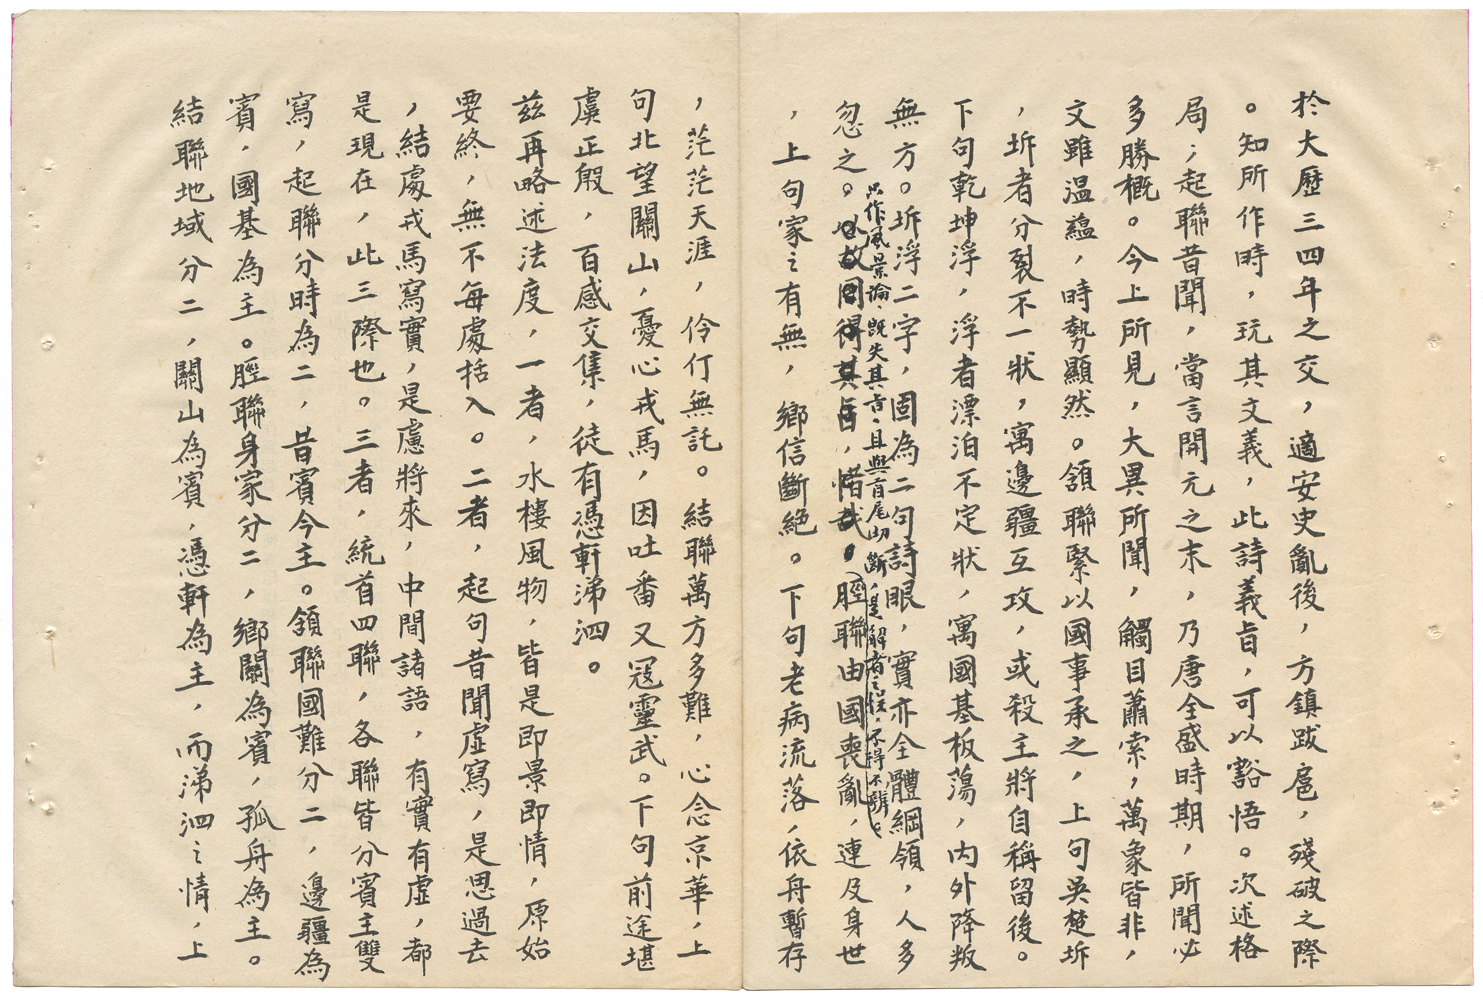 於大歷三四年之交，適安史亂後，方鎮跋扈，殘破之際
。知所作時，玩其文義，此詩義旨，可以豁悟。次述格
局；起聯昔聞，當言開元之末，乃唐全盛時期，所聞必
多勝概。今上所見，大異所聞，觸目蕭索，萬象皆非，
文雖温蘊，時勢顯然。領聯緊以國事承之，上句吳楚坼
，坼者分裂不一狀，寓邊疆互攻，或殺主將自稱留後。
下句乾坤浮，浮者漂泊不定狀，寓國基板蕩，内外降叛
無方。坼浮二字，固為二句詩眼，實亦全體綱領，人多
只作風景論，既失其旨，且與首尾切斷，是解者之怪，不得不辭之
忽之。以故罔得其旨，惜哉。脛聯由國喪亂，連及身世
，上句家之有無，鄉信斷絕。下句老病流落，依舟暫存
，茫茫天涯，伶仃無託。結聯萬方多難，心念京華，上
句北望關山，憂心戎馬，因吐番又寇靈武。下句前途堪
虞正殷，百感交集，徒有憑軒涕泗。
兹再略述法度，一者，水樓風物，皆是即景即情，原始
要終，無不每處括入。二者，起句昔聞虛寫，是思過去
，結處戎馬寫實，是慮將來，中間諸語，有實有虛，都
是現在，此三際也。三者，統首四聯，各聯皆分賓主雙
寫，起聯分時為二，昔賓今主。領聯國難分二，邊疆為
賓，國基為主。脛聯身家分二，鄉關為賓，孤舟為主。
結聯地域分二，關山為賓，憑軒為主，而涕泗之情，上